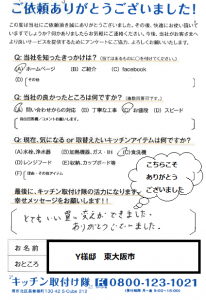 ご依頼ありがとうございました!
この度は当社にご依頼頂き誠にありがとうございました。その後、快適にお使い頂いて
いますでしょうか?何かありましたらお気軽にご連絡ください。今後、当社がお客さま
より良いサービスを提供するためにアンケートにご協力、よろしくお願いいたします。
Q: 当社を知ったきっかけは?
(A)ホームページ (B)ご紹介 (C)facebook
(D)(その他
Q: 当社の良かったところは何ですか?
(A)問い合わせからの対応 (B)丁寧な工事 (C)お値段 (D)スピード
Q: 現在、気になる or 取替えたいキッチンアイテムは何ですか?
(A)水栓、浄水器 (B)加熱機器、ガス・IH (C)食洗機
(D)レンジフード (E)収納、カップボード等
(F)
最後に、キッチン取付け隊の活力になります
幸せメッセージをお願いします!!
こちらこそ
ありがとう
ございました
とてもいい買い替えができました。
ありがとうございました。
お名前
おところ
Y様邸 東大阪市
キッチン取付け隊 0800-123-1021